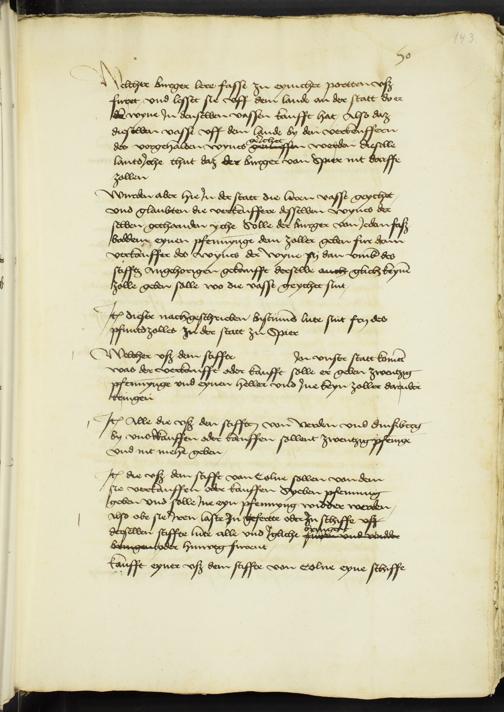 143
50
Welcher burger lere fasse zu eynicher portten vß
furet und lesset sie uff dem lande an der statt do er
wyne in denselben vassen kaufft hat Also daz
dieselben vasse uff dem lande by den verkeuffern
des wynes geychet werden dieselbe
thut daz der burger von Spier nit dorffe
zollen
Wurden aber hie in der statt die leren vasse geycht
und glaubten die verkeuffere desselben wynes der
selben ychte Solle der burger von jedem faß
eynen pfennynge dem zoller geben fur den
verkeuffer des wynes der wyne sy dan umb des
stifftes angehorigen gekaufft derselbe auch glich keyne
zolle geben solle wo die vasse geycht sint
Item dieser nachgeschrieben bistume lute sint fry des
pfuntzolles in der statt zu Spier
Welcher vß dem stiffte in unser statt komet
was der verkauffe oder kaufft solle er geben zwentzig
pfennynge und eynen heller und ine keyn zoller daruber
tringen
Item Alle die vß den stifften von Verden und
by uns kauffen oder verkauffen sollent zwentzig pfennige
und nit mehe geben
Item die vß dem stifft von Colne sollen von dem
sie verkauffen oder kauffen Syben pfennung
geben und solle ine eyn pfennyng widder werden
also obe sie iren laste in geferte oder in schiffe uß
desselben stiffte lute alle und igliche
bringen oder hinweg furent
Kaufft eyner vß dem stiffte von Colne eyne schiffe